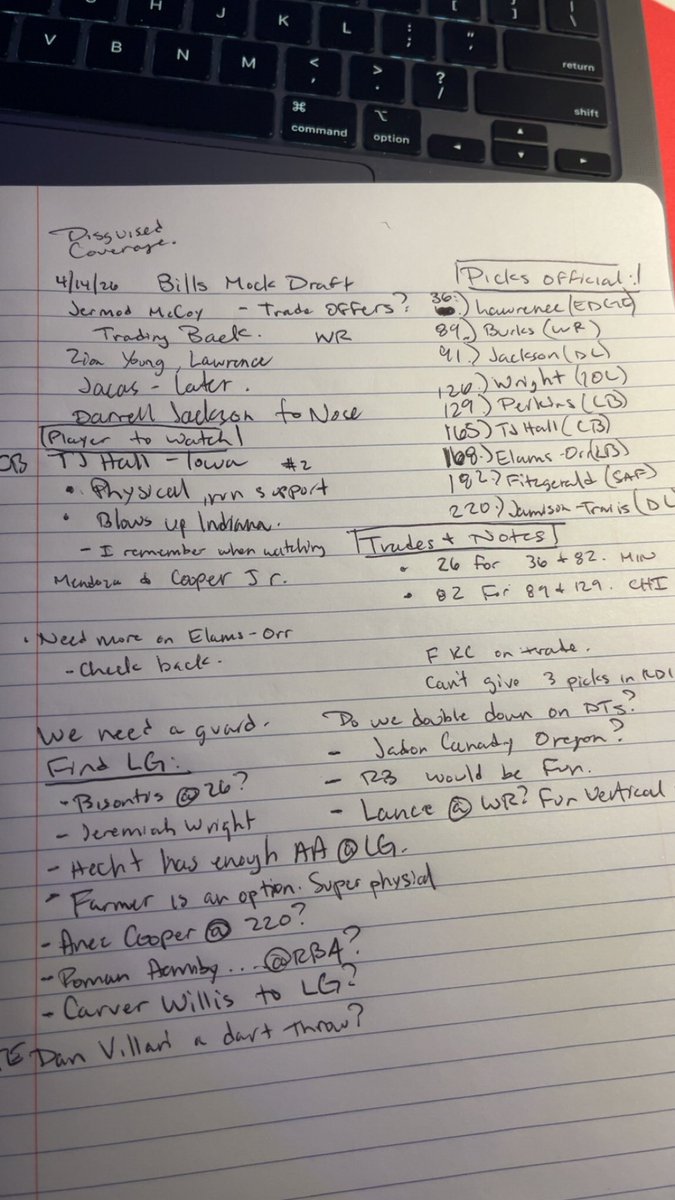 H J K L : ; " ' { [ } ] | \
V B N M < , > . ? / return
⌘ command ⌥ option shift
Disguised
Coverage.
4/14/26 Bills Mock Draft
Jermod McCoy - Trade offers?
Trading Back. WR
Zion Young, Lawrence
Jacas - Later.
Darrell Jackson to Nose
Player to Watch
CB TJ Hall - Iowa #2
• Physical, run support
• Blows up Indiana.
- I remember when watching
Mendoza & Cooper Jr.
• Need more on Elams-Orr
- Check back.
Picks official:
36.) Lawrence (EDGE)
89.) Burks (WR)
91.) Jackson (DL)
126.) Wright (IOL)
129) Perkins (CB)
165) TJ Hall (CB)
168.) Elams-Orr (LB)
182.) Fitzgerald (SAF)
220.) Jamison-Travis (DL
Trades + Notes
• 26 for 36 + 82. MIN
• 82 For 89 + 129. CHI
F KC on trade.
Can't give 3 picks in RD1
We need a guard.
Find LG:
- Bisontis @ 26?
- Jeremiah Wright
- Hecht has enough AA @ LG.
- Farmer is an option. Super physical
- Anez Cooper @ 220?
- Roman ... @ RBA?
- Carver Willis to LG?
TE Dan Villari a dart throw?
Do we double down on DTs?
- Jadon Canady Oregon?
- RB would be fun.
- Lance @ WR? Fun Vertical